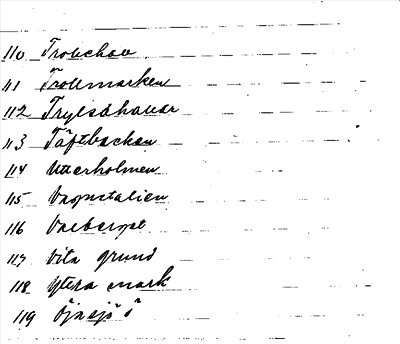 110 Trollehav
111 Trollmarken
112 Trylsåhavar
113 Täftbacken
114 Utterholmen
115
116 Varberget
117 Vita grund
118 Ytera mark
119 Öjesjö ö